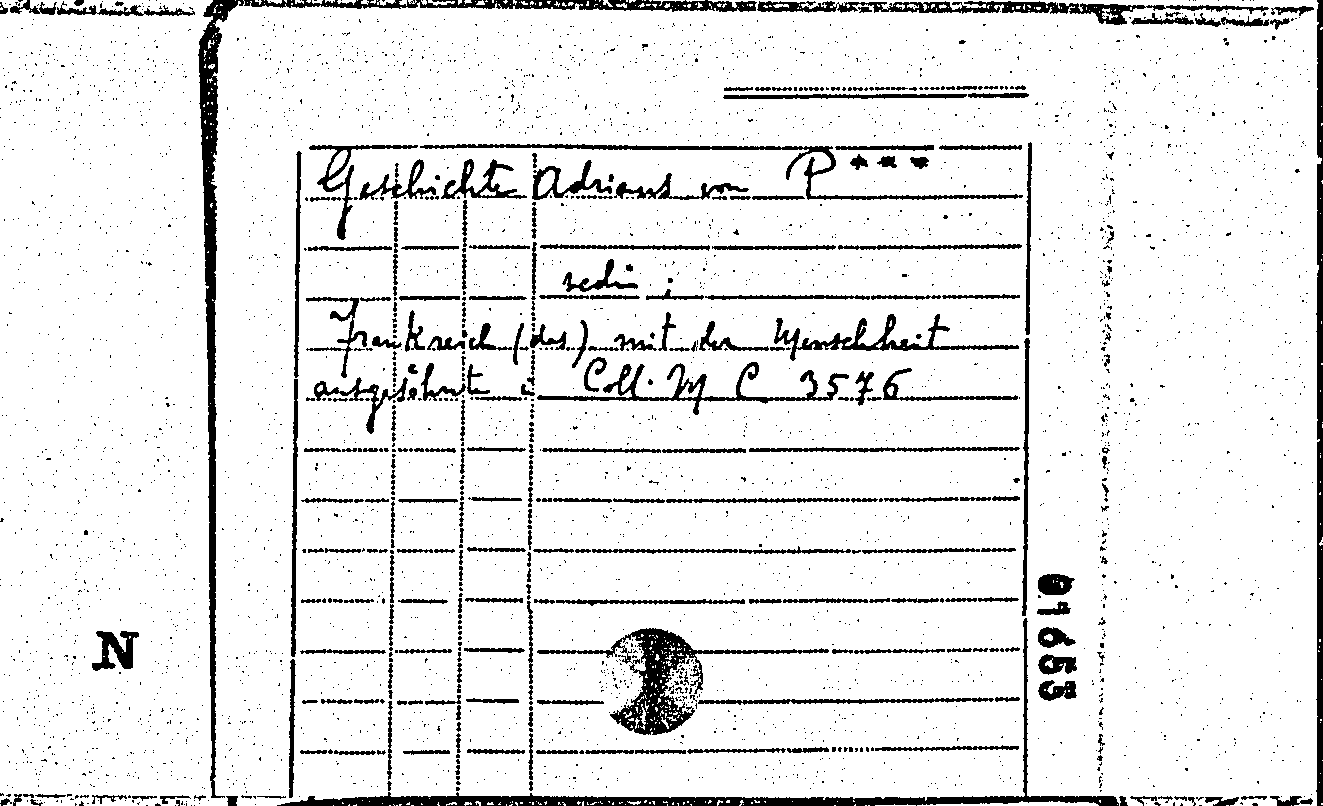 Geschichte Adrians von P***
vedi:
Frankreich (das) mit der Menschheit
ausgesöhnte Coll. M C 3576
N
01655